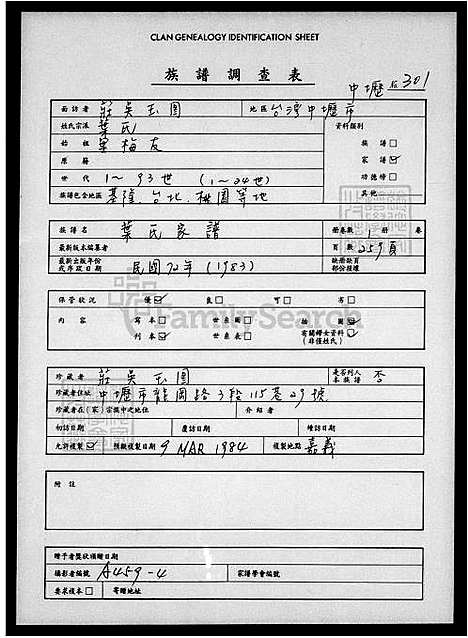 CLAN GENEALOGY IDENTIFICATION SHEET
族譜調查表
中壢 301
面訪者 莊吳玉圓 地區 台灣中壢市
姓氏宗派 葉氏 資料類別
始祖 梅友 族譜□
原籍 家譜☑
世代 1~93世 (1~24世) 功德榜□
族譜包含地區 基隆.台北.桃園等地 其他
族譜名 葉氏家譜 冊卷數 1 冊 卷
最新版本編纂者 頁數 259頁
最新出版年份或序跋日期 民國72年 (1983) 缺掉缺頁部份接續
保管狀況 優☑ 良□ 可□ 劣□
內容 寫本□ 世系圖□ 插圖☑
刊本☑ 世系表□ 有關婦女資料☑ (非僅姓氏)
FamilySearch
珍藏者 莊吳玉圓 是否列入本族譜 否
珍藏者住址 中壢市龍岡路3段115巷29號
珍藏者在(家)宗族中之地位 介紹者
初訪日期 覆訪日期 續訪日期
允許複製☑ 預擬複製日期 9 MAR 1984 複製地點 嘉義
附註
贈予者獎狀頒贈日期
攝影者編號 A459-4 家譜學會編號
要求複本□ 寄贈地址